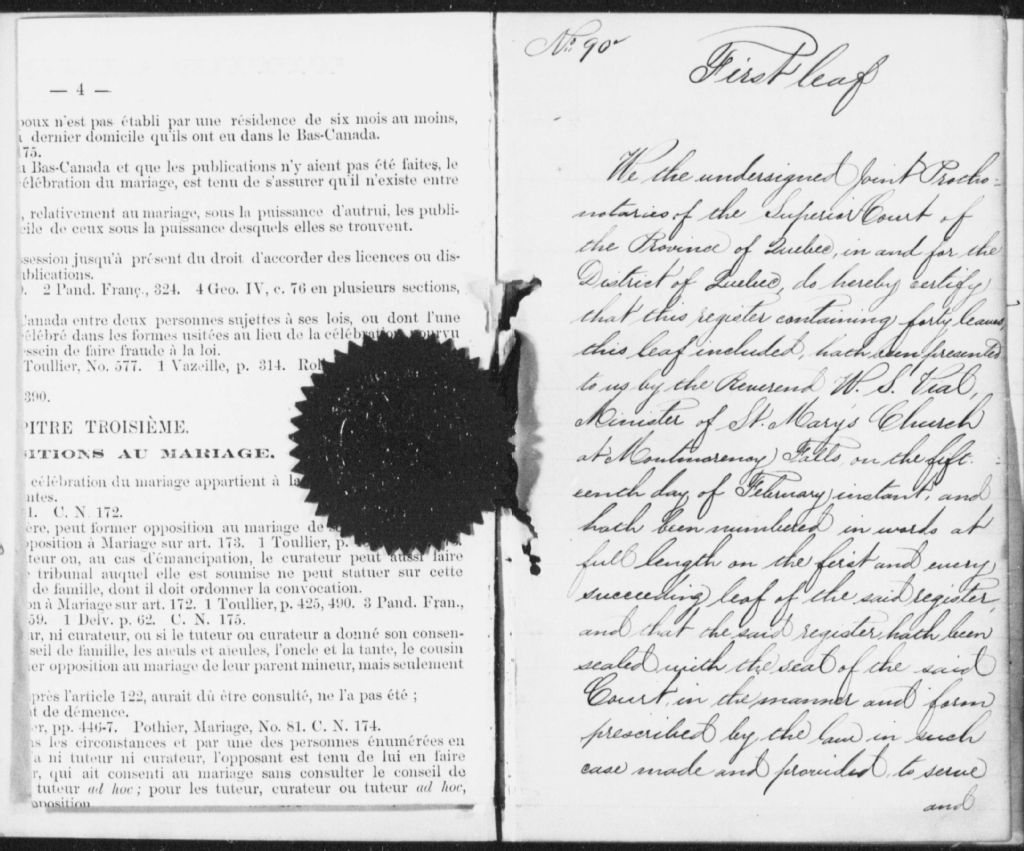 — 4 —
poux n'est pas établi par une résidence de six mois au moins,
dernier domicile qu'ils ont eu dans le Bas-Canada.
75.
Bas-Canada et que les publications n'y aient pas été faites, le
célébration du mariage, est tenu de s'assurer qu'il n'existe entre
, relativement au mariage, sous la puissance d'autrui, les publi-
cile de ceux sous la puissance desquels elles se trouvent.
session jusqu'à présent du droit d'accorder des licences ou dis-
ublications.
). 2 Pand. Franç., 324. 4 Geo. IV, c. 76 en plusieurs sections,
Canada entre deux personnes sujettes à ses lois, ou dont l'une
célébré dans les formes usitées au lieu de la célébration pourvu
ssein de faire fraude à la loi.
Toullier, No. 577. 1 Vazeille, p. 314. Rol
390.
PITRE TROISIÈME.
ITIONS AU MARIAGE.
célébration du mariage appartient à la
ntes.
1. C. N. 172.
ère, peut former opposition au mariage de
pposition à Mariage sur art. 173. 1 Toullier, p.
teur ou, au cas d'émancipation, le curateur peut aussi faire
tribunal auquel elle est soumise ne peut statuer sur cette
de famille, dont il doit ordonner la convocation.
on à Mariage sur art. 172. 1 Toullier, p. 425, 490. 3 Pand. Fran.,
59. 1 Delv. p. 62. C. N. 175.
ur, ni curateur, ou si le tuteur ou curateur a donné son consen-
seil de famille, les aieuls et aieules, l'oncle et la tante, le cousin
er opposition au mariage de leur parent mineur, mais seulement
près l'article 122, aurait dû être consulté, ne l'a pas été ;
t de démence.
er, pp. 446-7. Pothier, Mariage, No. 81. C. N. 174.
is les circonstances et par une des personnes énumérées en
a ni tuteur ni curateur, l'opposant est tenu de lui en faire
r, qui ait consenti au mariage sans consulter le conseil de
tuteur ad hoc ; pour les tuteur, curateur ou tuteur ad hoc,
pposition
No. 90
First leaf
We the undersigned Joint Protho-
notaries of the Superior Court of
the Province of Quebec, in and for the
District of Quebec, do hereby certify
that this register containing forty leaves,
this leaf included, hath been presented
to us by the Reverend W. S. Vial,
Minister of St. Mary's Church
at Montmorency Falls, on the fift-
eenth day of February instant, and
hath been numbered in words at
full length on the first and every
succeeding leaf of the said register,
and that the said register hath been
sealed with the seal of the said
Court, in the manner and form
prescribed by the law in such
case made and provided, to serve
and